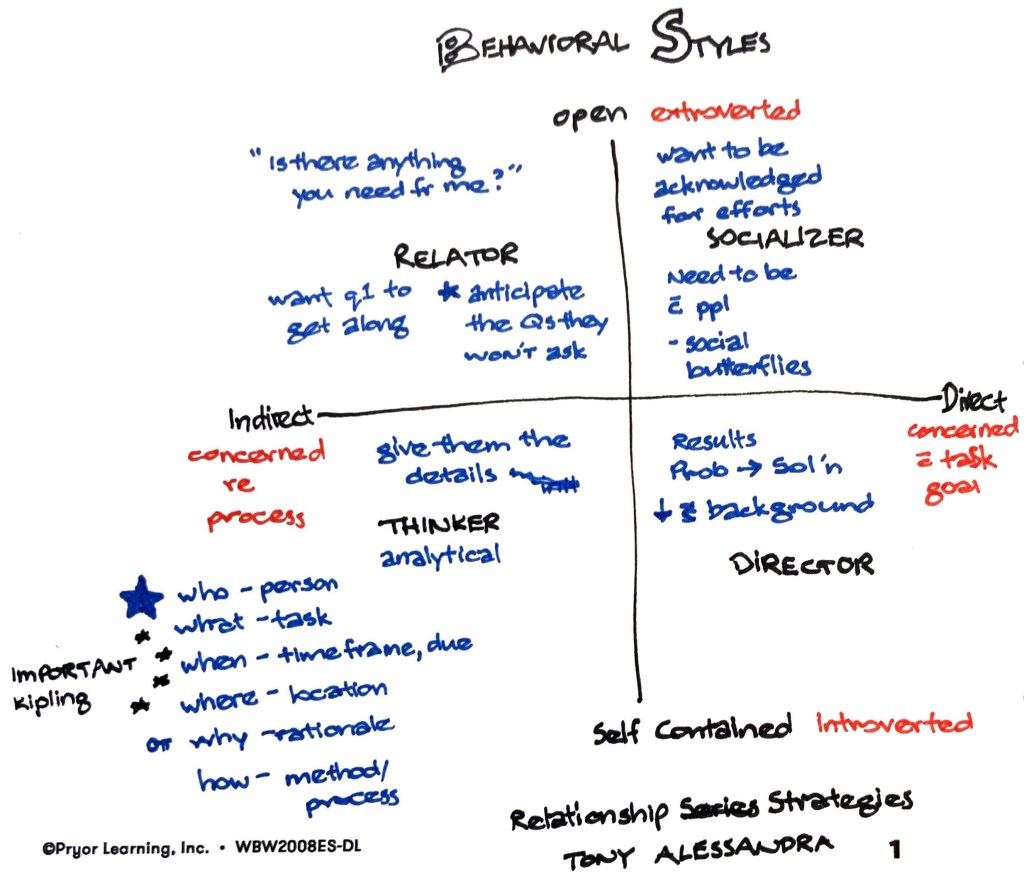 BEHAVIORAL STYLES
open extroverted
"Is there anything
you need fr me?"
want to be
acknowledged
for efforts
RELATOR
SOCIALIZER
want q1 to
get along
* anticipate
the Qs they
WON'T ask
Need to be
c̄ ppl
- social
butterflies
Indirect
Direct
concerned
re
process
give them the
details
THINKER
analytical
Results
Prob → Sol'n
↓ background
DIRECTOR
concerned
c̄ task
goal
★ who - person
* what - task
* when - timeframe, due
* where - location
or why - rationale
how - method/
process
IMPORTANT
Kipling
Self Contained Introverted
Relationship Series Strategies
TONY ALESSANDRA
©Pryor Learning, Inc. • WBW2008ES-DL
1